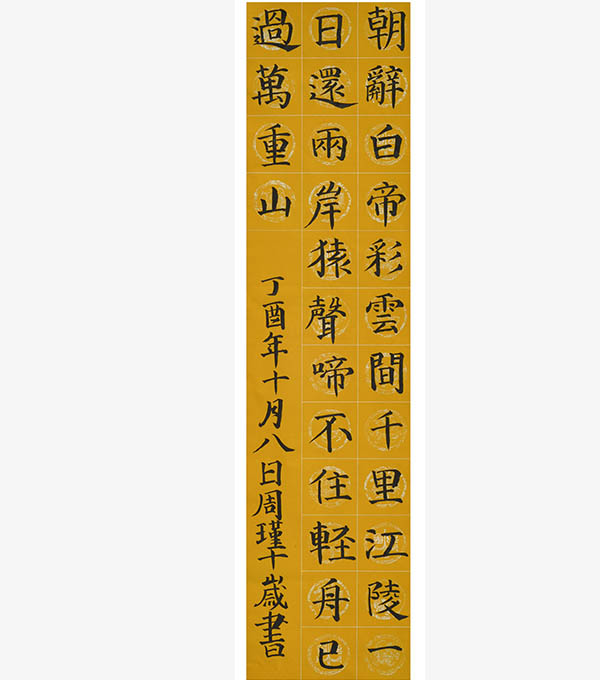 朝辭白帝彩雲間千里江陵一
日還兩岸猿聲啼不住軽舟已
過萬重山
丁酉年十月八日周瑾十歲書